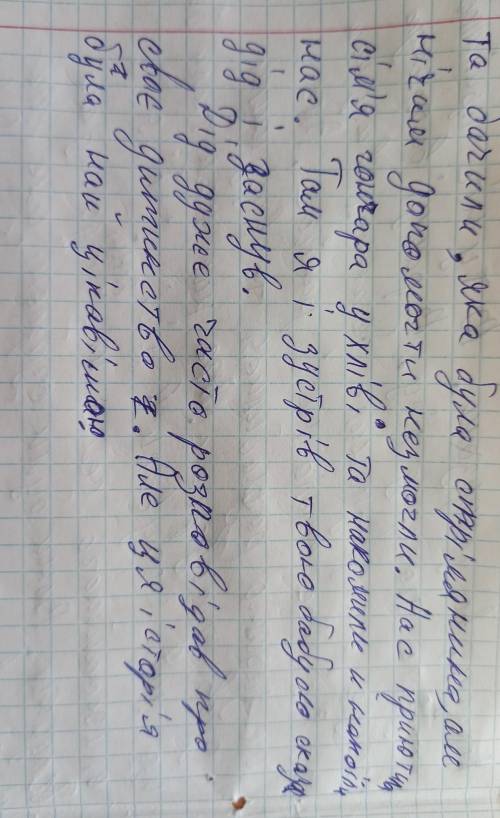 Та бачили, яка була стрілянина, але
нічим допомогти незмогли. Нас приютила
сім'я гончара у хліві, та накомили и напоїли
нас. Там я і зустрів твою бабусю сказав
дід і заснув.
Дід дуже часто розповідав про
своє дитинство. Але ця історія
була най цікавішою